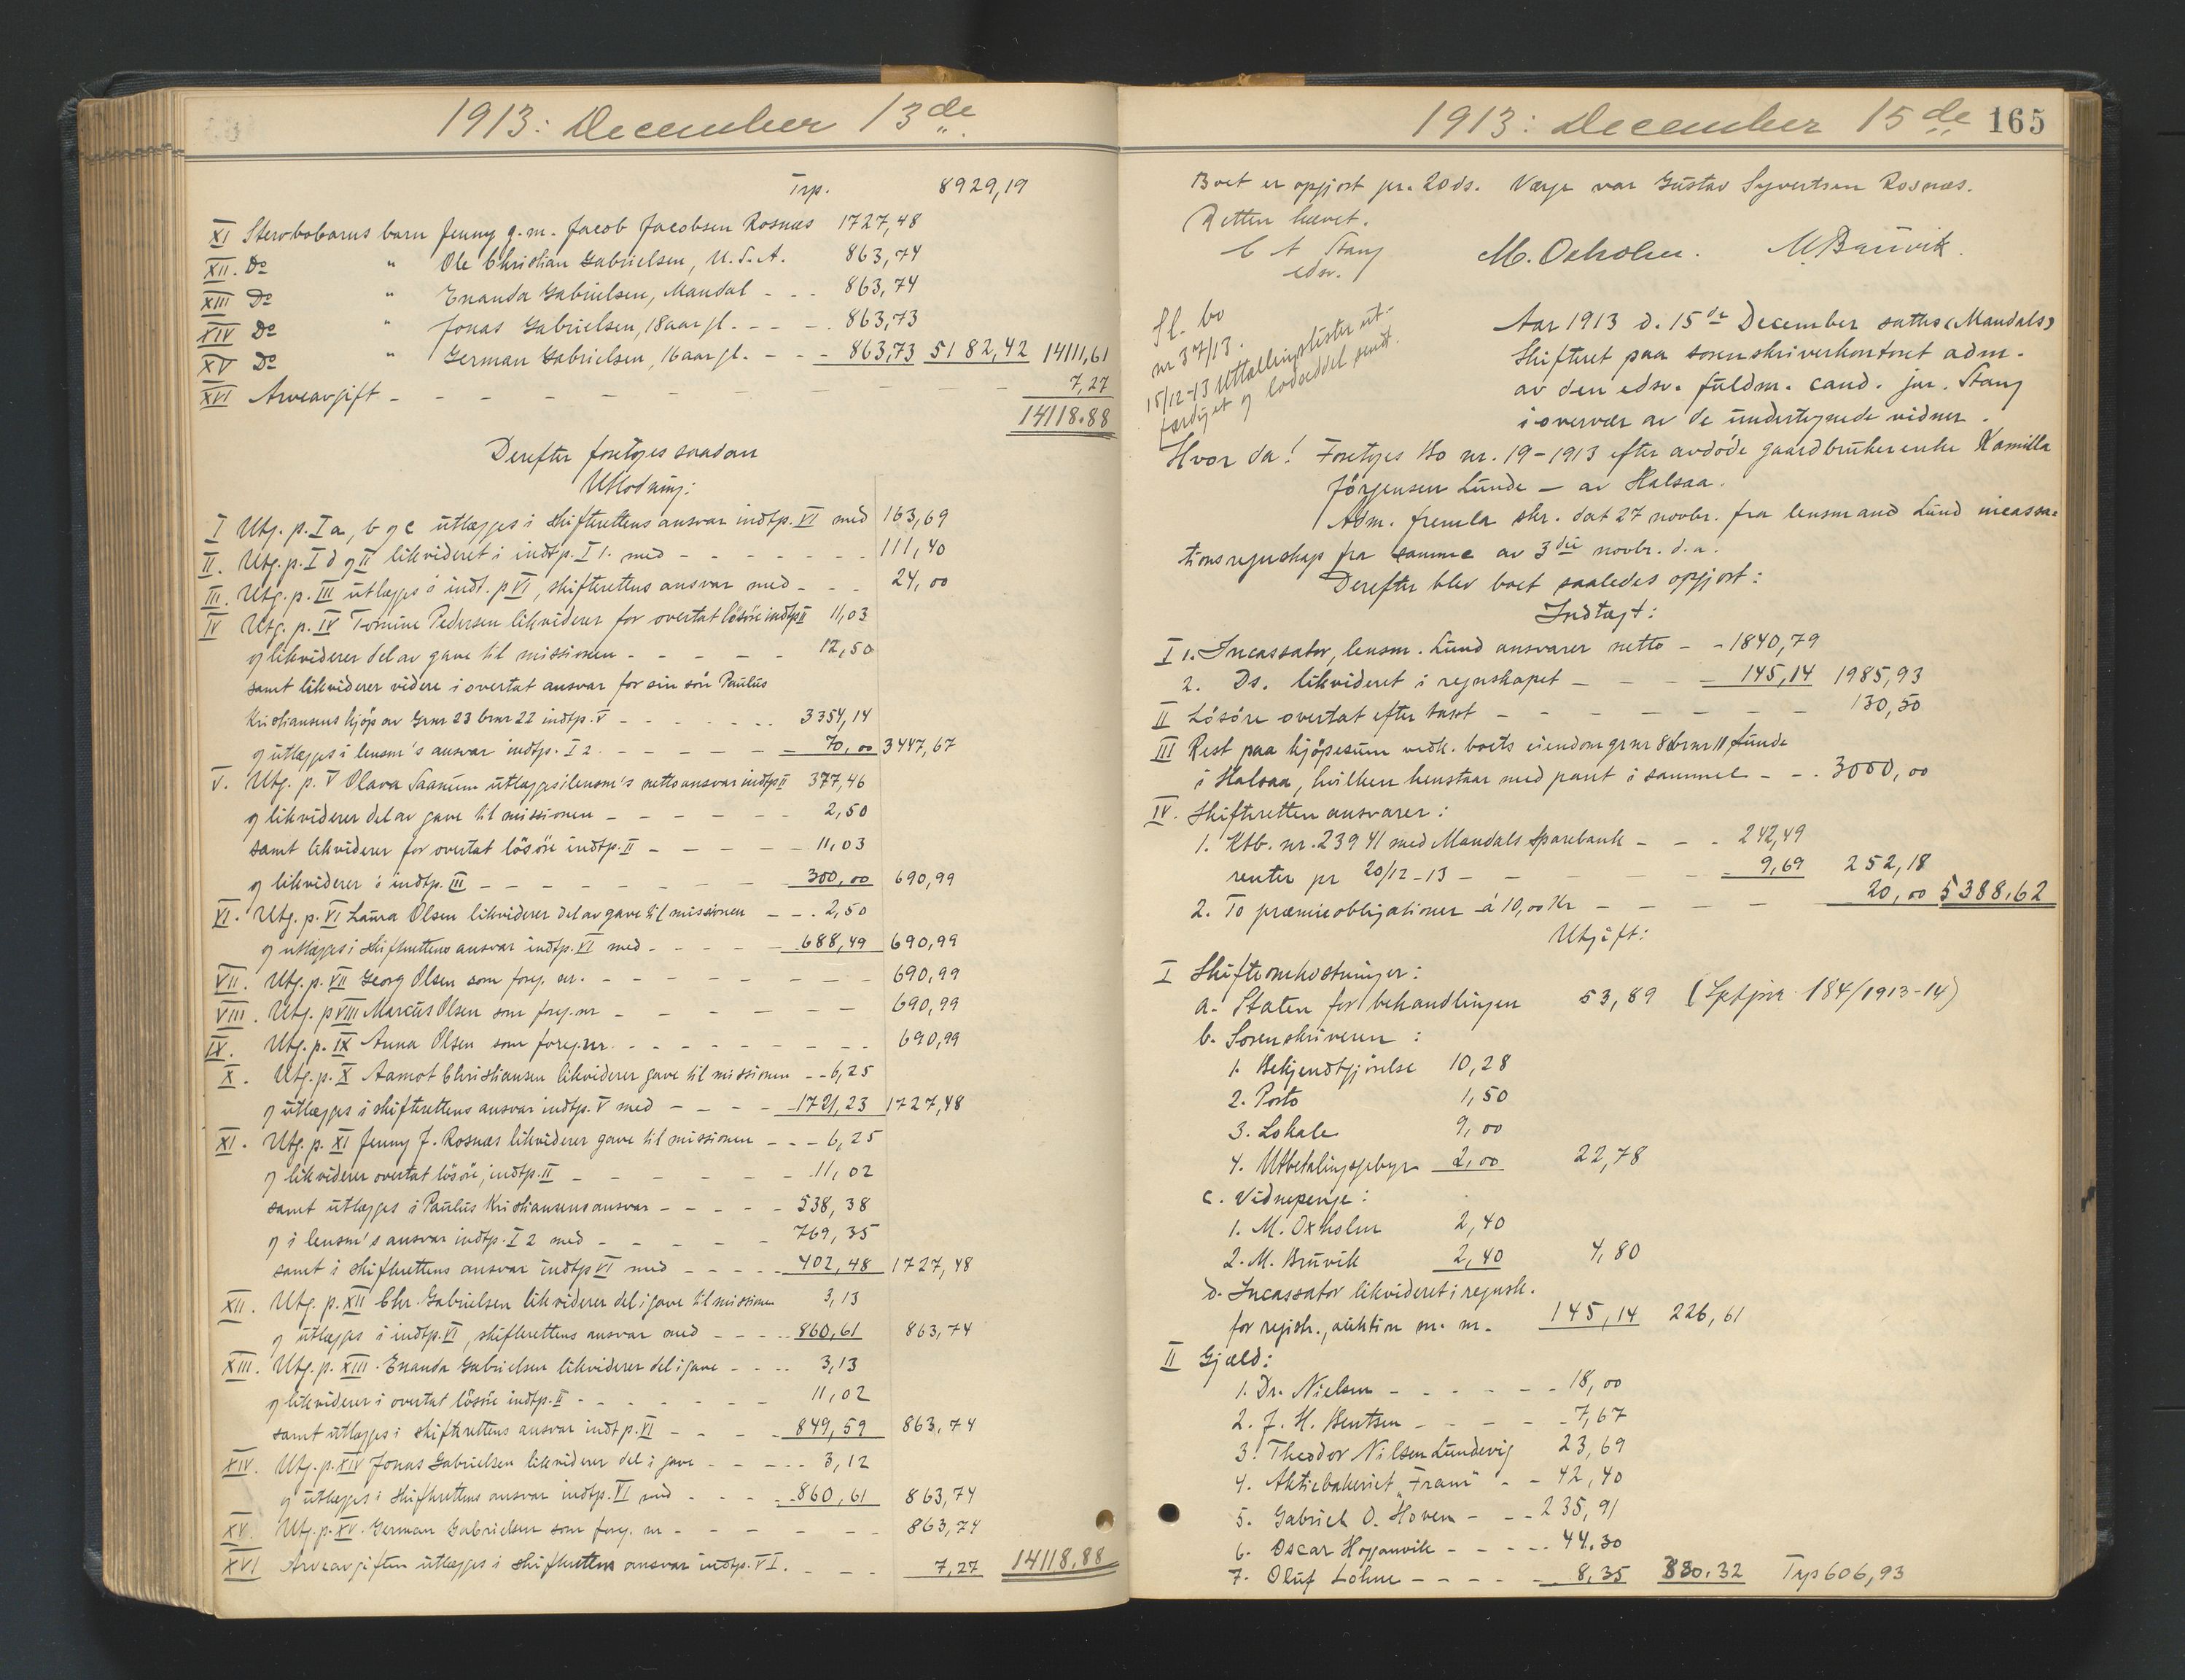 1913: December 13de
Trp. 8929,19
XI Stervbobarns barn Jenny g.m. Jacob Jacobsen Rosnæs 1727,48
XII. Do " Ole Christian Gabrielsen, U.S.A. 863,74
XIII Do " Enanda Gabrielsen, Mandal - - - 863,74
XIV Do " Jonas Gabrielsen, 18 aar gl. - - - - 863,73
XV Do " German Gabrielsen, 16 aar gl. - - - 863,73 5182,42 14111,61
XVI Arveavgift - - - - - - - - - - - 7,27
14118.88
Derefter foretoges saadan
Utlodning:
I Utg. p. I a, b og c utlægges i skifterettens ansvar indtp. VI med 163,69
II. Utg. p. I d og II likvideret i indtp. I 1. med - - - - - - 111,40
III. Utg. p. III utlægges i indt. p VI, skifterettens ansvar med - - - 24,00
IV Utg. p. IV Tomine Pedersen likviderer for overtat lösöre indtp II 11,03
og likviderer del av gave til missionen - - - - - 12,50
samt likviderer videre i overtat ansvar for sin sön Paulus
Kristiansens kjöp av Grnr 23 brnr 22 indtp. V - - - - - - 3354,14
og utlægges i lensm's ansvar indtp. I 2 - - - - - - 70,00 3447,67
V. Utg. p. V Olava Saanum utlægges i lensm's nettoansvar indtp II 377,46
og likviderer del av gave til missionen - - - - - - 2,50
samt likviderer for overtat lösöre indtp. II - - - - - 11,03
og likviderer i indtp. III - - - - - - - - 300,00 690,99
VI. Utg. p. VI Laura Olsen likviderer del av gave til missionen - - . 2,50
og utlægges i skifterettens ansvar indtp. VI med - - - - 688,49 690,99
VII. Utg. p. VII Georg Olsen som foreg. nr. - - - - - - - 690,99
VIII. Utg. p VIII Marcus Olsen som foreg. nr - - - - - - 690,99
IX. Utg. p. IX Anna Olsen som foreg. nr. - - - - - - - - 690,99
X. Utg. p. X Aamot Christiansen likviderer gave til missionen - - 6,25
og utlægges i skifterettens ansvar indtp. V med - - - - 1721,23 1727,48
XI. Utg. p. XI Jenny J. Rosnæs likviderer gave til missionen - - - 6,25
og likviderer overtat lösöre, indtp. II - - - - - - - 11,02
samt utlægges i Paulus Kristiansens ansvar - - - - - 538,38
og i lensm's ansvar indtp. I 2 med - - - - - - 769,35
samt i skifterettens ansvar indtp VI med - - - - - 402,48 1727,48
XII. Utg. p. XII Chr. Gabrielsen likviderer del i gave til missionen 3,13
og utlægges i indtp. VI, skifterettens ansvar med - - - - 860,61 863,74
XIII. Utg. p. XIII. Enanda Gabrielsen likviderer del i gave - - - - 3,13
og likviderer i overtat lösöre indtp. II - - - - - - - 11,02
samt utlægges i skifterettens ansvar indt p. VI - - - - 849,59 863,74
XIV. Utg. p. XIV Jonas Gabrielsen likviderer del i gave - - - - - 3,12
og utlægges i skifterettens ansvar indtp. VI med - - - - 860,61 863,74
XV. Utg. p. XV. German Gabrielsen som foreg. nr - - - - - - 863,74
XVI Arveavgiften utlægges i skifterettens ansvar indtp. VI. - - - 7,27 14118,88
1913: December 15de 165
Boet er opgjort pr. 20 ds. Værge var Gustav Syvertsen Rosnæs.
Retten hævet.
C A Stang
edsv.
M. Oxholm. M. Bruvik.
Sl. bo
nr 37/13.
15/12-13 Uttællingslister ut-
færdiget og lodseddel sendt.
Aar 1913 d. 15de December sattes Mandals
Skifteret paa sorenskriverkontoret adm.
av den edsv. fuldm. cand. jur. Stang
i overvær av de undertegnede vidner.
Hvor da! Foretoges Bo nr. 19-1913 efter avdöde gaardbrukerenke Kamilla
Jörgensen Lunde - av Halsaa.
Adm. fremla skr. dat 27 novbr. fra lensmand Lund incassa-
tionsregnskap fra samme av 3die novbr. d.a.
Derefter blev boet saaledes opgjort:
Indtægt:
I 1. Incassator, lensm. Lund ansvarer netto - - 1840,79
2. Ds. likvideret i regnskapet - - - - 145,14 1985,93
II Lösöre overtat efter takst - - - - - - - 130,50
III Rest paa kjöpesum vedk. boets eiendom grnr 8 brnr 11 Lunde
i Halsaa, hvilken henstaar med pant i samme - - . 3000,00
IV. Skifteretten ansvarer:
1. Ktb. nr. 23941 med Mandals Sparebank - - - 242,49
renter pr 20/12-13 - - - - - 9,69 252,18
2. To præmieobligationer á 10,00 Kr - - - - 20,00 5388.62
Utgift:
I Skifteomkostninger:
a. Staten for behandlingen 53,89 (Sptjnr 184/1913-14)
b. Sorenskriveren:
1. Bekjendtgjörelse 10,28
2. Porto 1,50
3. Lokale 9,00
4. Utbetalingsgebyr 2,00 22,78
c. Vidnepenge:
1. M. Oxholm 2,40
2. M. Bruvik 2,40 4,80
d. Incassator likvideret i regnsk.
for registr., auktion m. m. 145,14 226,61
II Gjæld:
1. Dr. Nielsen - - - - - - 18,00
2. J. H. Bentsen - - - - - 7,67
3. Theodor Nilsen Lundevig 23,69
4. Aktiebakeriet "Fram" - - 42,40
5. Gabriel O. Hoven - - - 235,91
6. Oscar Hogganvik - - - - - 44.30
7. Oluf Löhne - - - - - 8,35 380.32 Trp 606,93